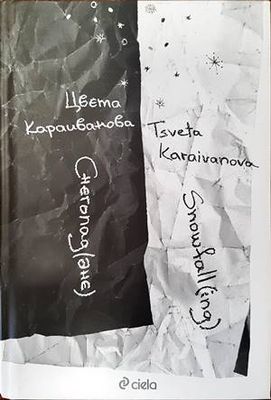 Цвета
Караиванова
Снегопад(ане)
Tsveta
Karaivanova
Snowfall(ing)
ciela